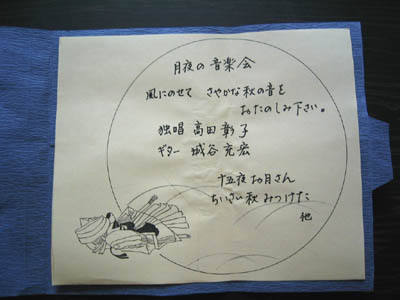 月夜の音楽会
風にのせて さやかな秋の音を
おたのしみ下さい。
独唱 高田彰子
ギター 城谷充宏
十五夜お月さん
ちいさい秋みつけた
他